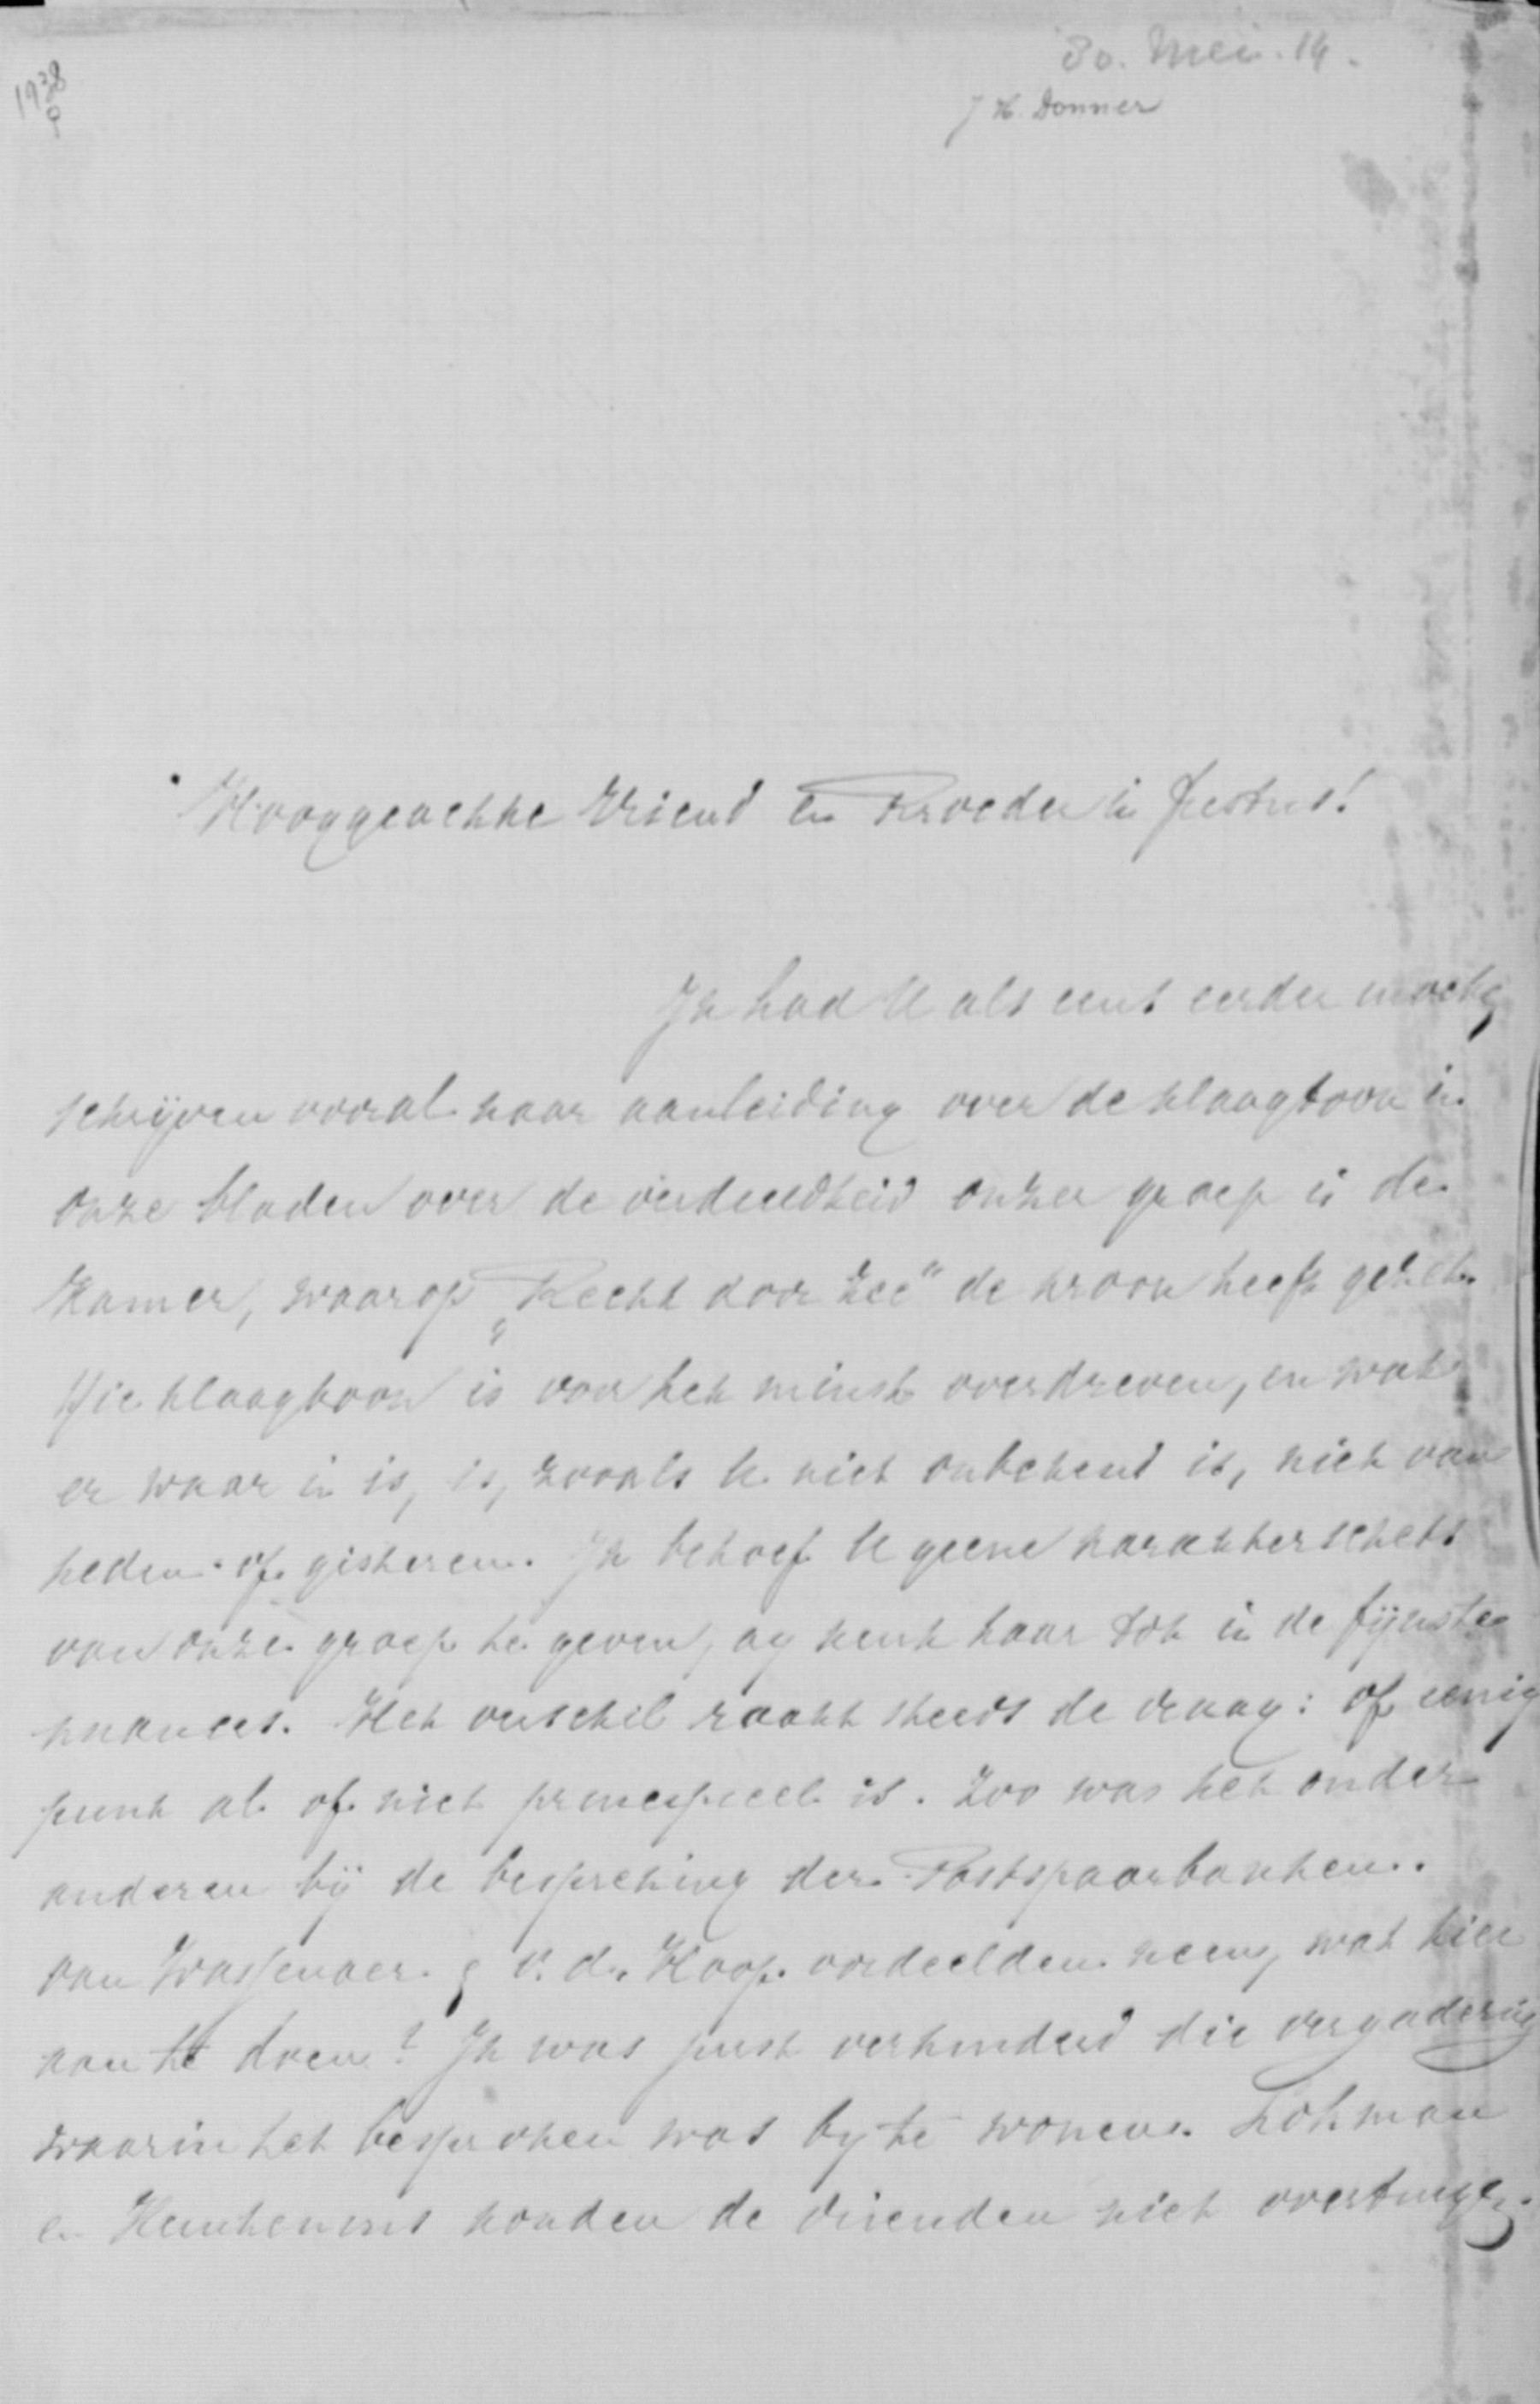 30. Mei. 14.
J H. Donner
1938
Hooggeachte Vriend en Broeder in Jesus!
Ik had U als eens eerder moete
schrijven vooral naar aanleiding over de klaagtoon in
onze bladen over de verdeeldheid onzer groep in de
Kamer, waarop „Recht door Zee" de kroon heeft gezet.
Die klaagtoon is voor het minst overdreven, en wat
er waar in is, is, zooals U niet onbekend is, niet van
heden of gisteren. Ik behoef U geene karakterschets
van onze groep te geven, gy kent haar tot in de fijnste
nuances. Het verschil raakt steeds de vraag: of eenig
punt al of niet principieel is. Zoo was het onder
anderen bij de bespreking der Postspaarbanken.
van Wassenaer & v. d. Hoop oordeelden neen, wat hier
aan te doen? Ik was juist verhinderd die vergadering
waarin het besproken was by te wonen. Lohman
en Keuchenius konden de vrienden niet overtuigen.